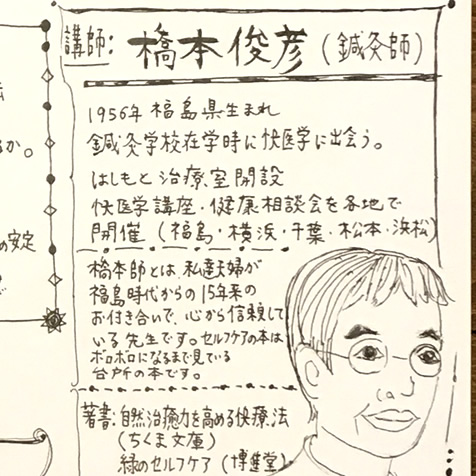 講師: 橋本俊彦 (鍼灸師)
1956年 福島県生まれ
鍼灸学校在学時に快医学に出会う。
はしもと治療室開設
快医学講座・健康相談会を各地で
開催 (福島・横浜・千葉・松本・浜松)
橋本師とは、私達夫婦が
福島時代からの15年来の
お付き合いで、心から信頼して
いる先生です。セルフケアの本は
ボロボロになるまで見ている
台所の本です。
著書: 自然治癒力を高める快療法
(ちくま文庫)
緑のセルフケア (博進堂)
か。
の安定